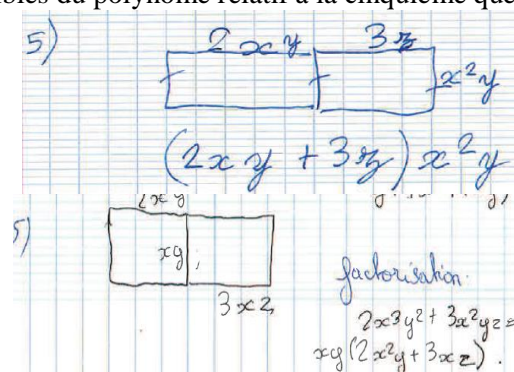 ibles du polynôme relatif à la cinquième que
5)
2xy 3z
x²y
(2xy + 3z) x²y
5)
xy
3xz
factorisation
2x³y² + 3x²yz =
xy(2x²y + 3xz).